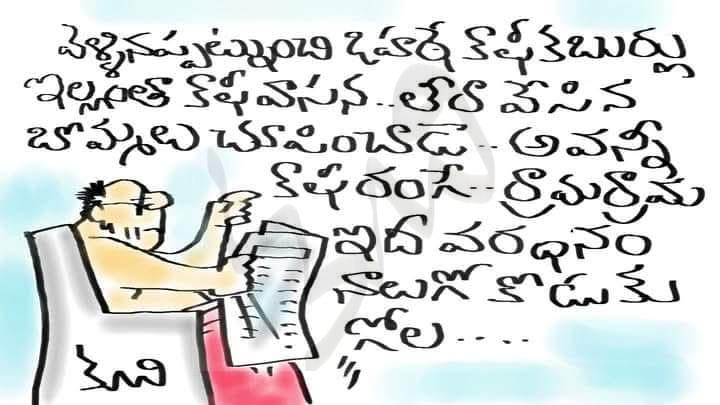 వెళ్ళినప్పట్నుంచి ఒహటే కాఫీ కబుర్లు
ఇల్లంతా కాఫీ వాసన.. లేరా వేసిన
బొమ్మలు చూపించాడు.. అవన్నీ
కాఫీ రంగే... రామరామ
ఇదీ వరధనం
నాలుగో కొడుకు
గోల.....
"